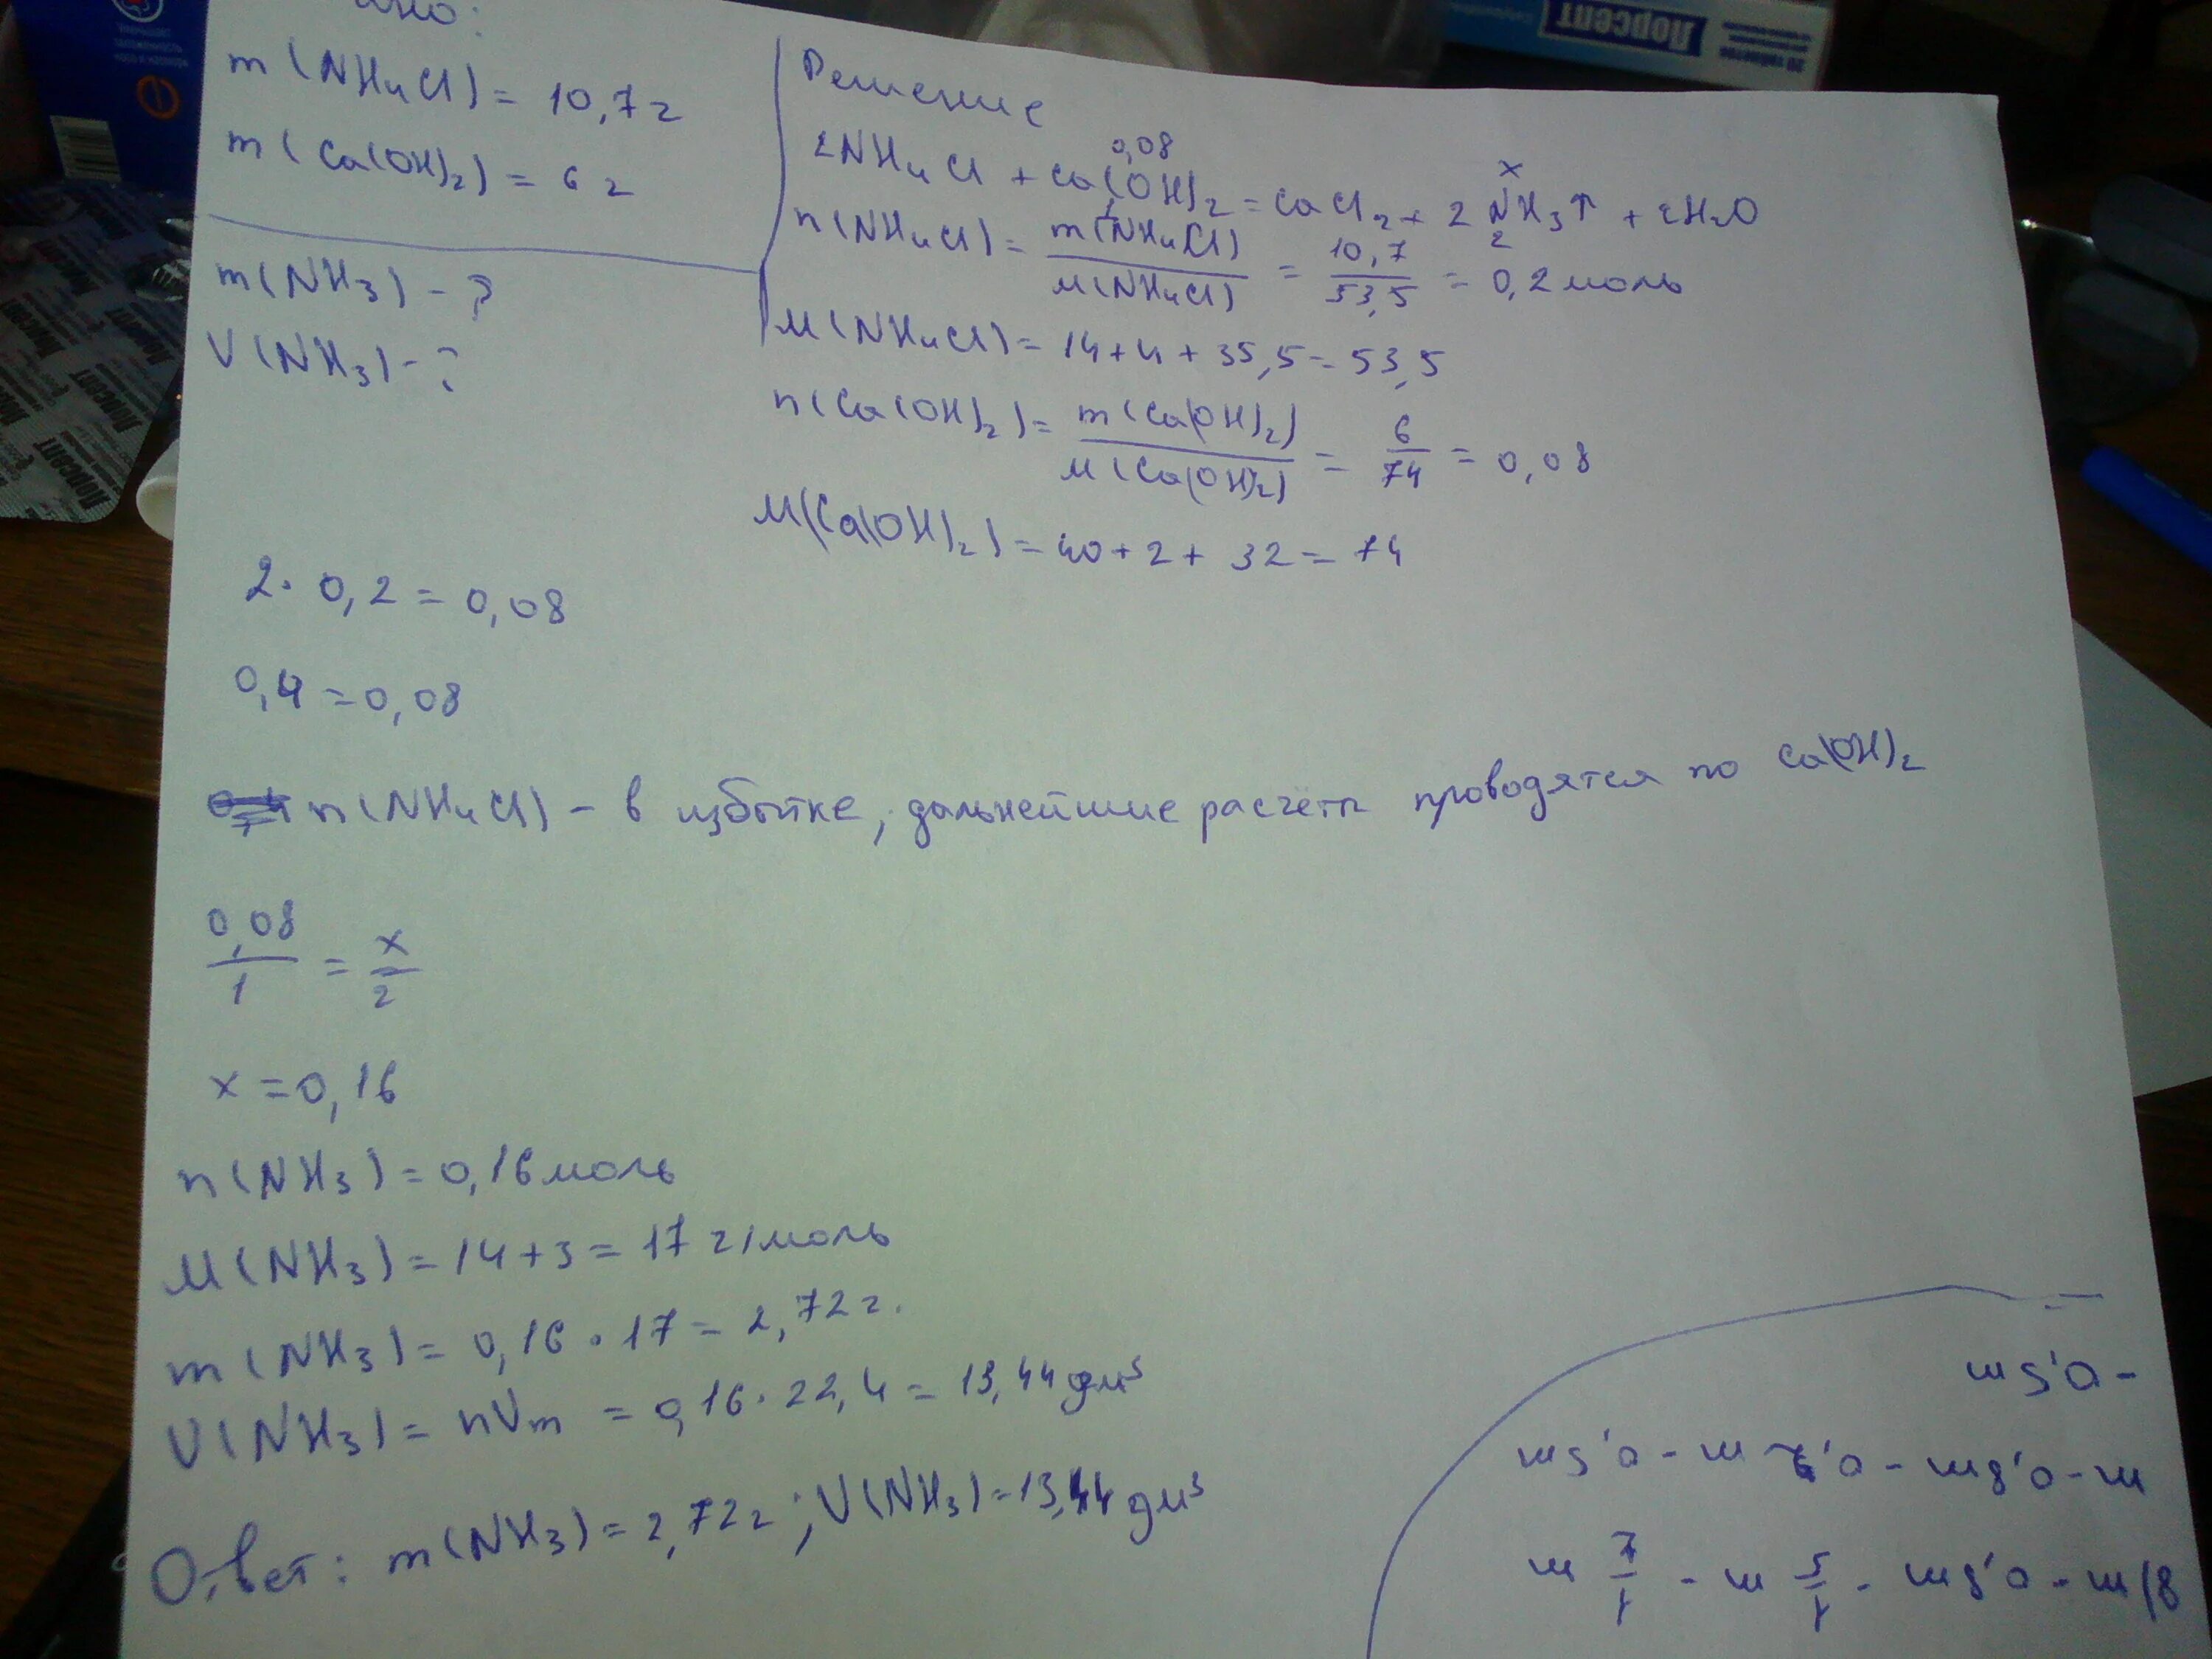 m(NH₄Cl) = 10,7 г
m(Ca(OH)₂) = 6 г
m(NH₃) - ?
V(NH₃) - ?
Решение
2NH₄Cl + Ca(OH)₂ = CaCl₂ + 2NH₃↑ + 2H₂O
0,08
x
1
2
n(NH₄Cl) = m(NH₄Cl)/M(NH₄Cl) = 10,7/53,5 = 0,2 моль
M(NH₄Cl) = 14+4+35,5 = 53,5
n(Ca(OH)₂) = m(Ca(OH)₂)/M(Ca(OH)₂) = 6/74 = 0,08
M(Ca(OH)₂) = 40+2+32 = 74
2·0,2 = 0,08
0,4 = 0,08
n(NH₄Cl) - в избытке, дальнейшие расчёты проводятся по Ca(OH)₂
0,08/1 = x/2
x = 0,16
n(NH₃) = 0,16 моль
M(NH₃) = 14+3 = 17 г/моль
m(NH₃) = 0,16·17 = 2,72 г.
V(NH₃) = nVm = 0,16·22,4 = 13,44 дм³
Ответ: m(NH₃) = 2,72 г; V(NH₃) = 13,44 дм³
8) m - 0,8m - 1/5 m - 1/2 m
m - 0,8m - 0,2m - 0,5m
- 0,5m
Лорсепт
20 таблеток